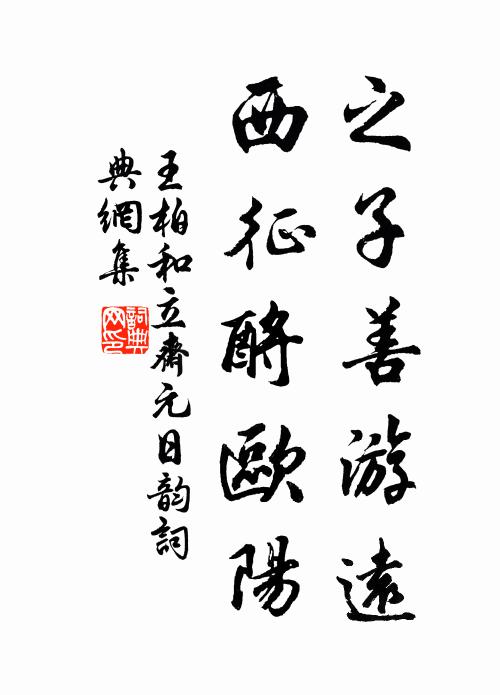 之子善游遠
西征酹歐陽
王柏和立齋元日韵詞
典網集
詞典網印